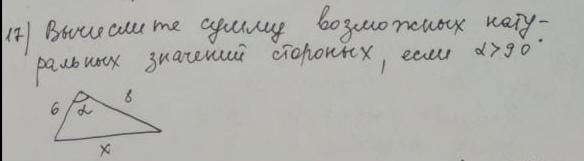 17) Вычислите сумму возможных нату-
ральных значений стороны x, если α>90°
6 α 8
x